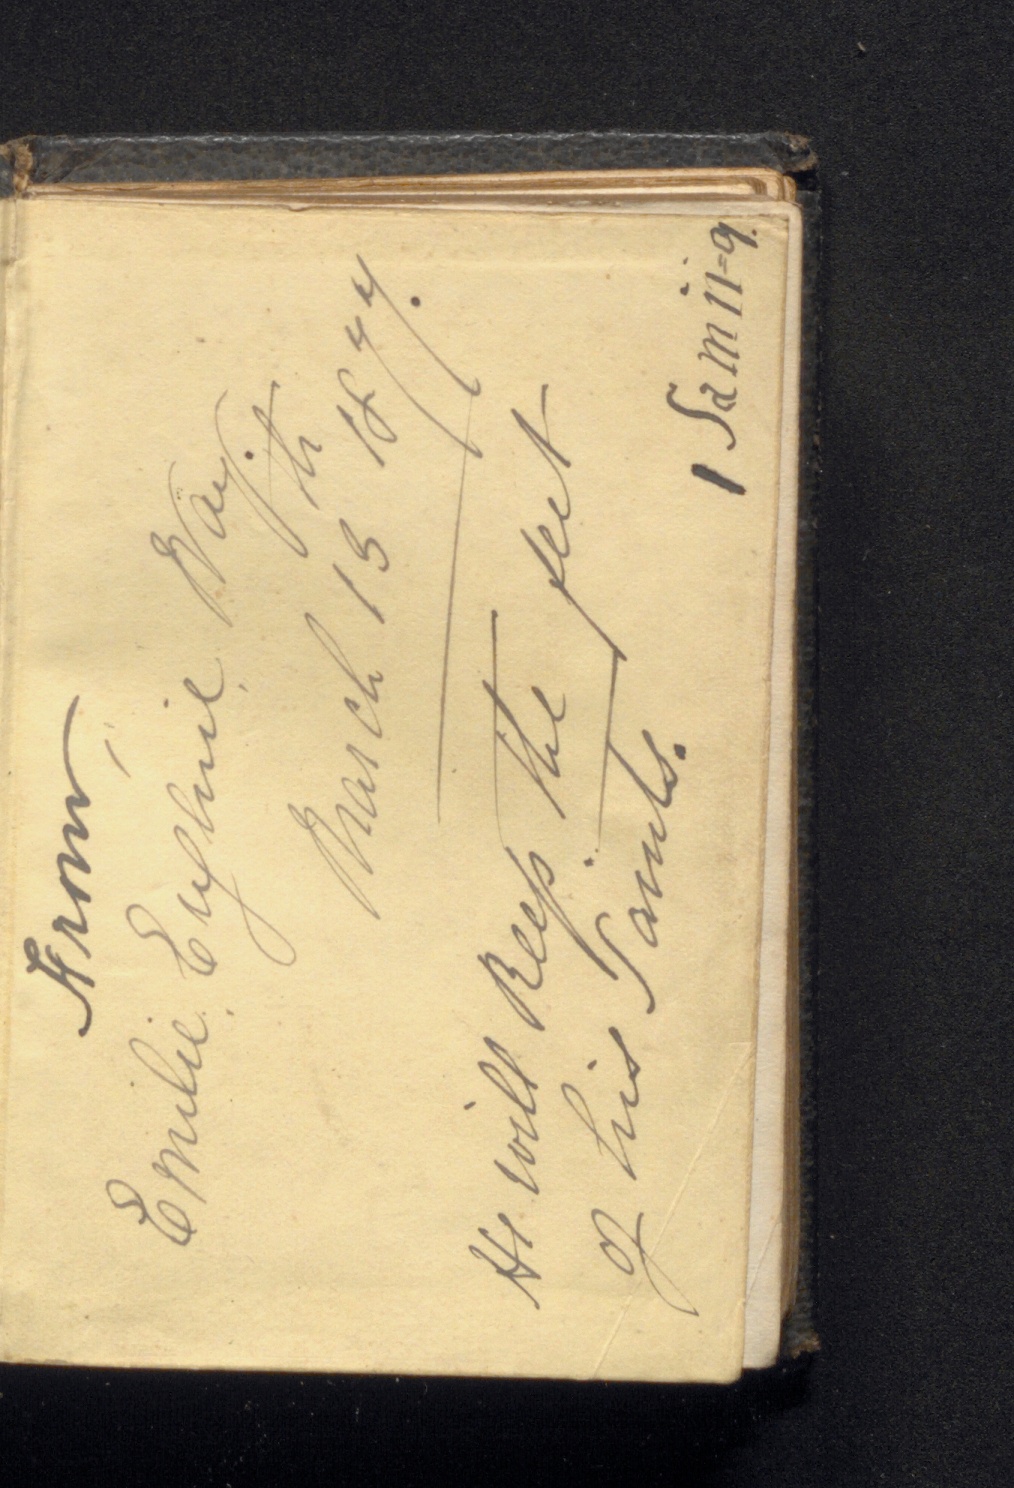 From
Emilie Euphine Wait
March 15th 1877.
He will keep the feet
of his Saints.
1 Sam ii=9.